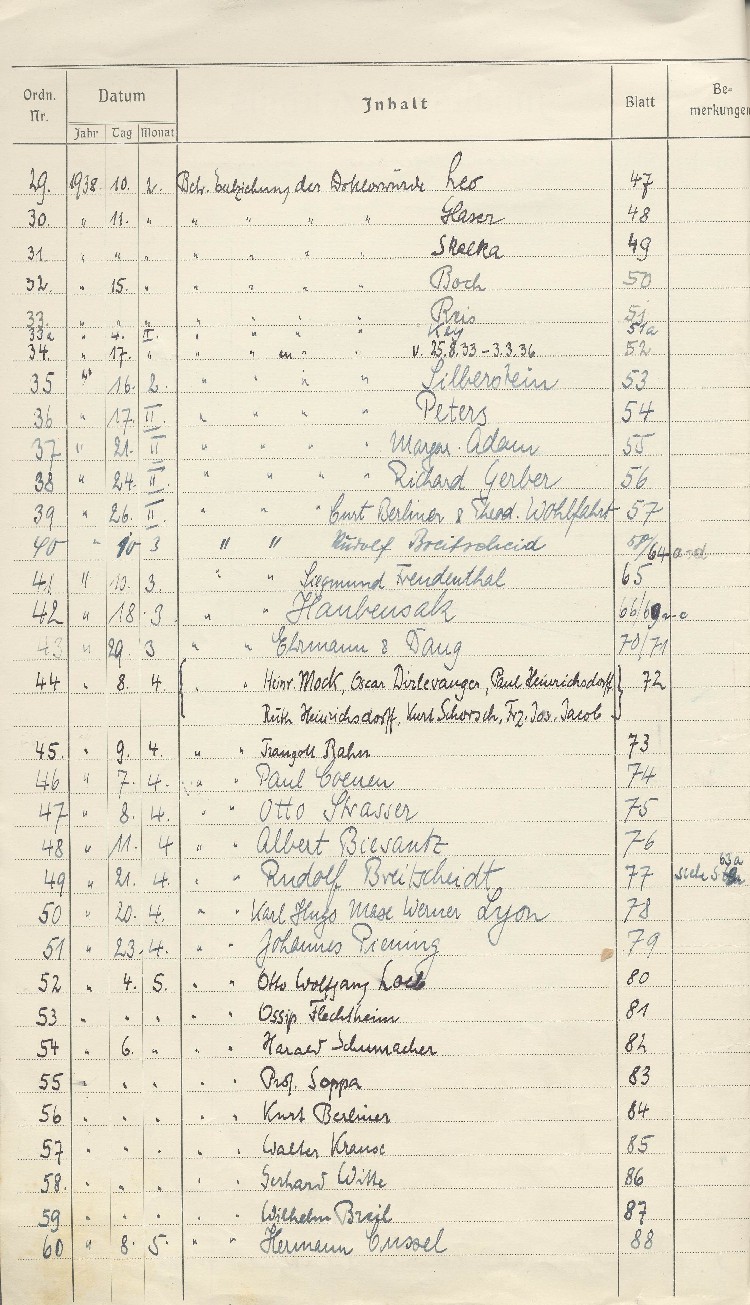 Ordn. Nr. Datum Inhalt Blatt Be-merkungen
Jahr Tag Monat
29. 1938. 10. 2. Betr. Entziehung der Doktorwürde Leo 47
30. " 11. " " " " " Glaser 48
31 " " " " " " " Skalka 49
32. " 15. " " " " " Boch 50
33. " " " " " " " Reis 51
33a " 4. II. " " " " Key 51a
34. " 17. " " " en " v. 25.8.33 - 3.3.36 52
35 " 16. 2. " " " " Silberstein 53
36 " 17. II. " " " " Peters 54
37 " 21. II " " " " Margar. Adam 55
38 " 24. II. " " " " Richard Gerber 56
39 " 26. II. " " " Curt Berliner & Theod. Wohlfahrt 57
40 " 10 3 " " Rudolf Breitscheid 58/64 a-d
41 " 13. 3. " " Siegmund Freudenthal 65
42 " 18. 3. " " Haubensak 66/69 a-c
43 " 29 3 " " Ehrmann & Daug 70/71
44 " 8. 4. { " " Heinr. Mock, Oscar Dirlevanger, Paul Heinrichsdorff } 72
Ruth Heinrichsdorff, Kurt Schorsch, Frz. Jos. Jacob
45. " 9. 4. " " Traugott Rahn 73
46 " 7. 4. " " Paul Coenen 74
47 " 8. 4. " " Otto Strasser 75
48 " 11. 4 " " Albert Biesantz 76
49 " 21. 4. " " Rudolf Breitscheidt 77 63a
50 " 20. 4. " " Karl Hugo Max Werner Lyon 78
51 " 23. 4. " " Johannes Piening 79
52 " 4. 5. " " Otto Wolfgang Loeb 80
53 " " " " " Ossip Flechtheim 81
54 " 6. " " " Harald Schumacher 82
55 " " " " " Prof. Soppa 83
56 " " " " " Kurt Berliner 84
57 " " " " " Walter Krause 85
58. " " " " " Gerhard Witte 86
59 " " " " " Wilhelm Breil 87
60 " 8. 5. " " Hermann Cussel 88